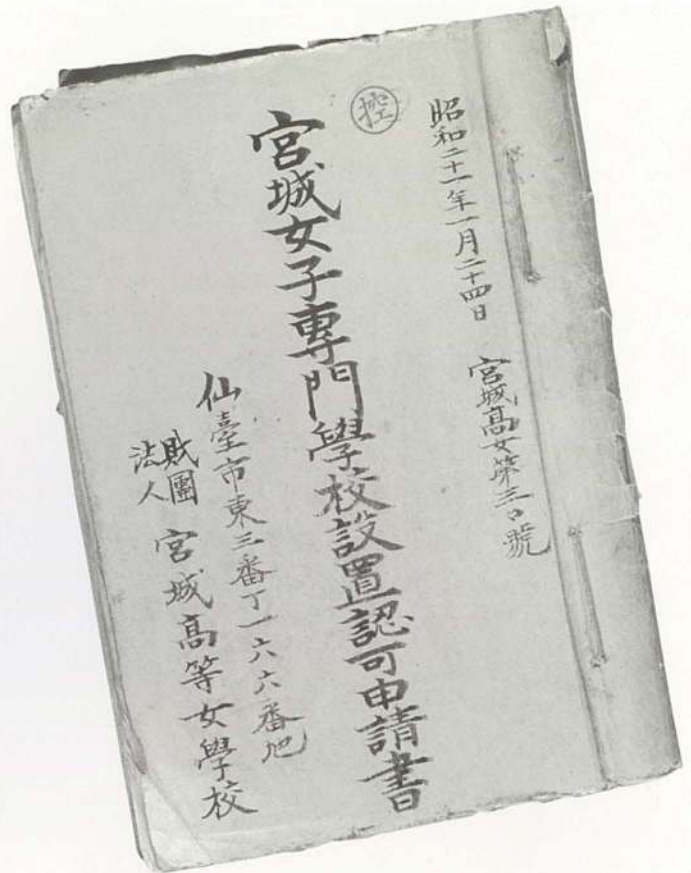 昭和二十一年一月二十四日　宮城高女第三〇號
控
宮城女子專門學校設置認可申請書
仙臺市東三番丁一六六番地
財團法人　宮城高等女學校